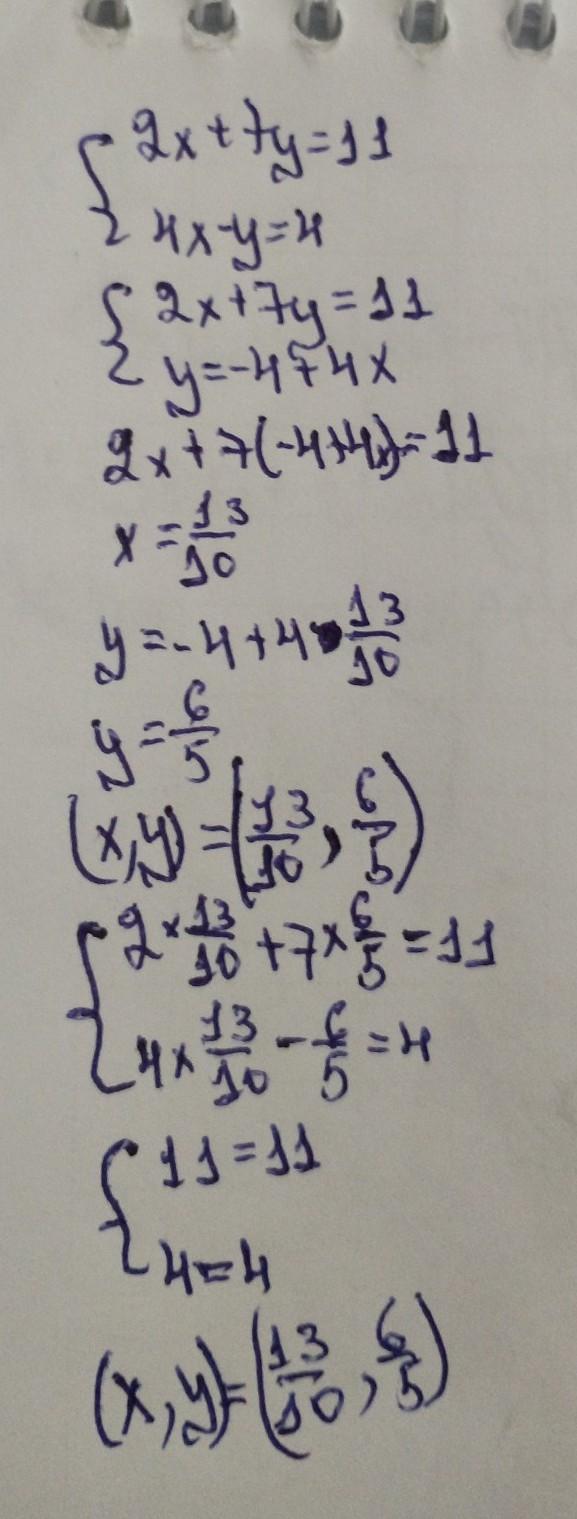 { 2x+7y=11
4x-y=4
{ 2x+7y=11
y=-4+4x
2x+7(-4+4x)=11
x=13/10
y=-4+4•13/10
y=6/5
(x,y)=(13/10, 6/5)
{ 2×13/10+7×6/5=11
4×13/10-6/5=4
{ 11=11
4=4
(x,y)=(13/10, 6/5)